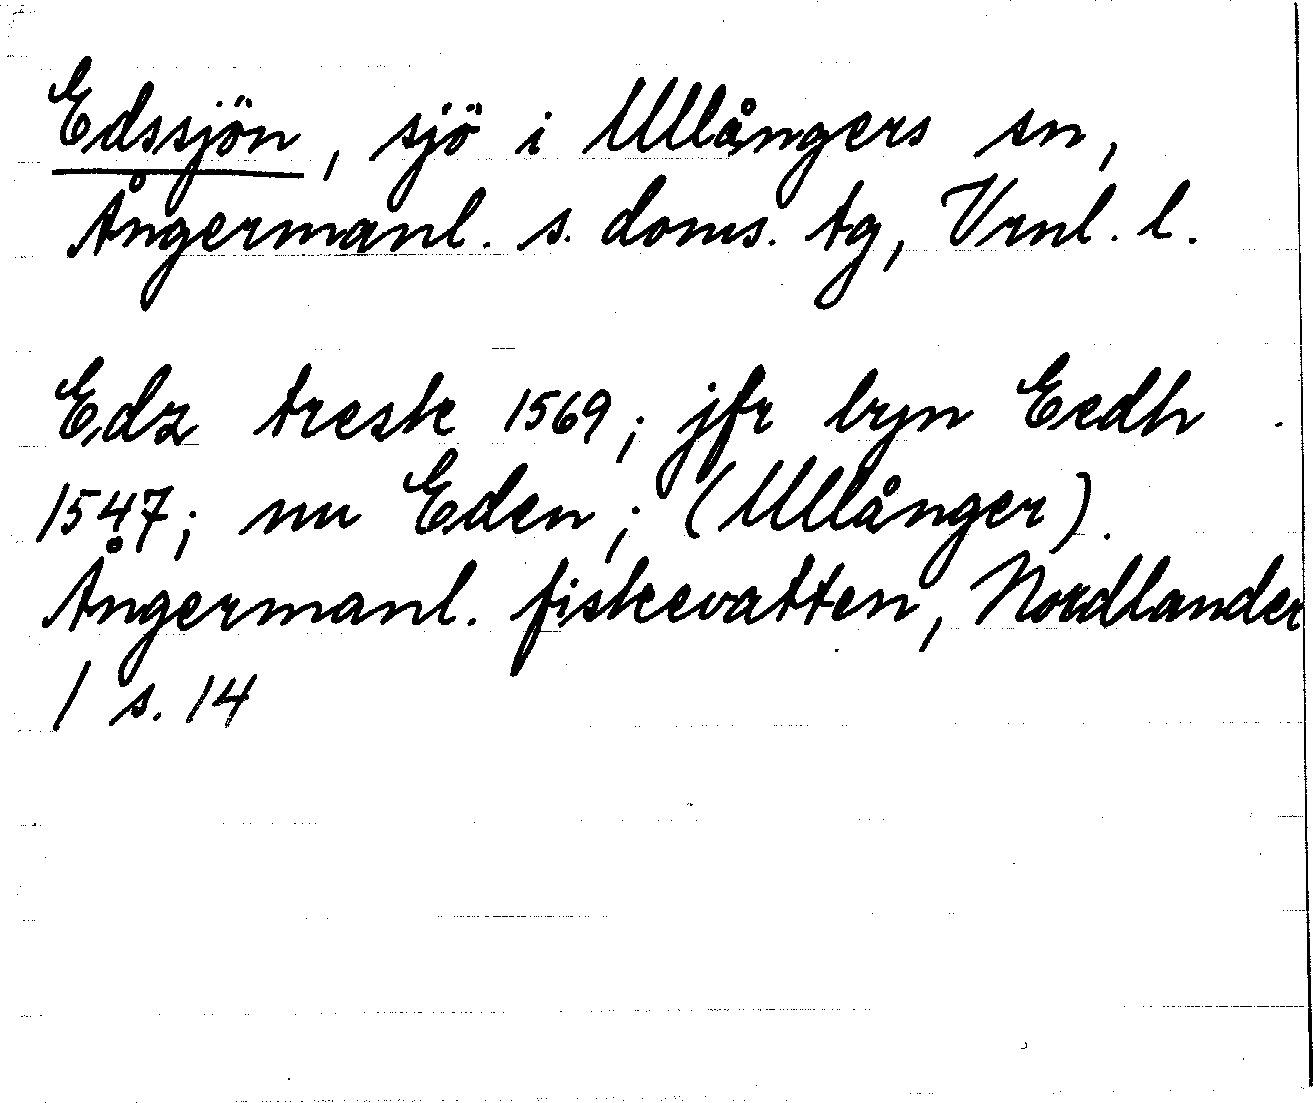 Edssjön, sjö i Ullångers sn,
Ångermanl. s. doms. tg, Vrnl. l.
Edz tresk 1569; jfr byn Eedh
1547; nu Eden; (Ullånger).
Ångermanl. fiskevatten, Nordlander
1 s. 14